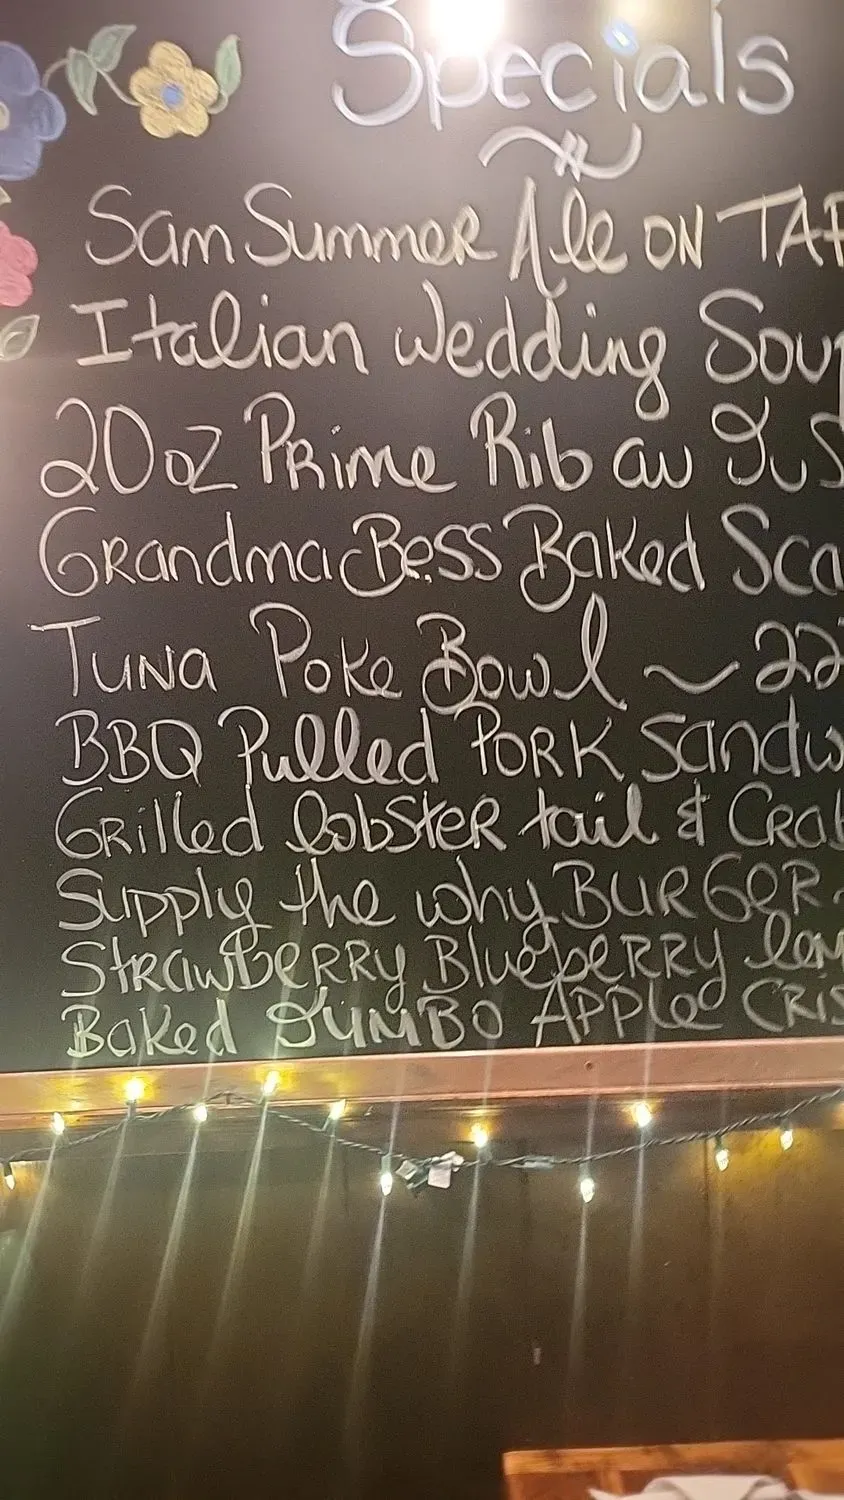 Specials
Sam Summer Ale ON TAP
Italian Wedding Soup
20oz Prime Rib au Jus
Grandma Bess Baked Sca
Tuna Poke Bowl ~ 22
BBQ Pulled Pork Sandw
Grilled lobster tail & Crab
Supply the why BURGER
Strawberry Blueberry lem
Baked JUMBO Apple Cris